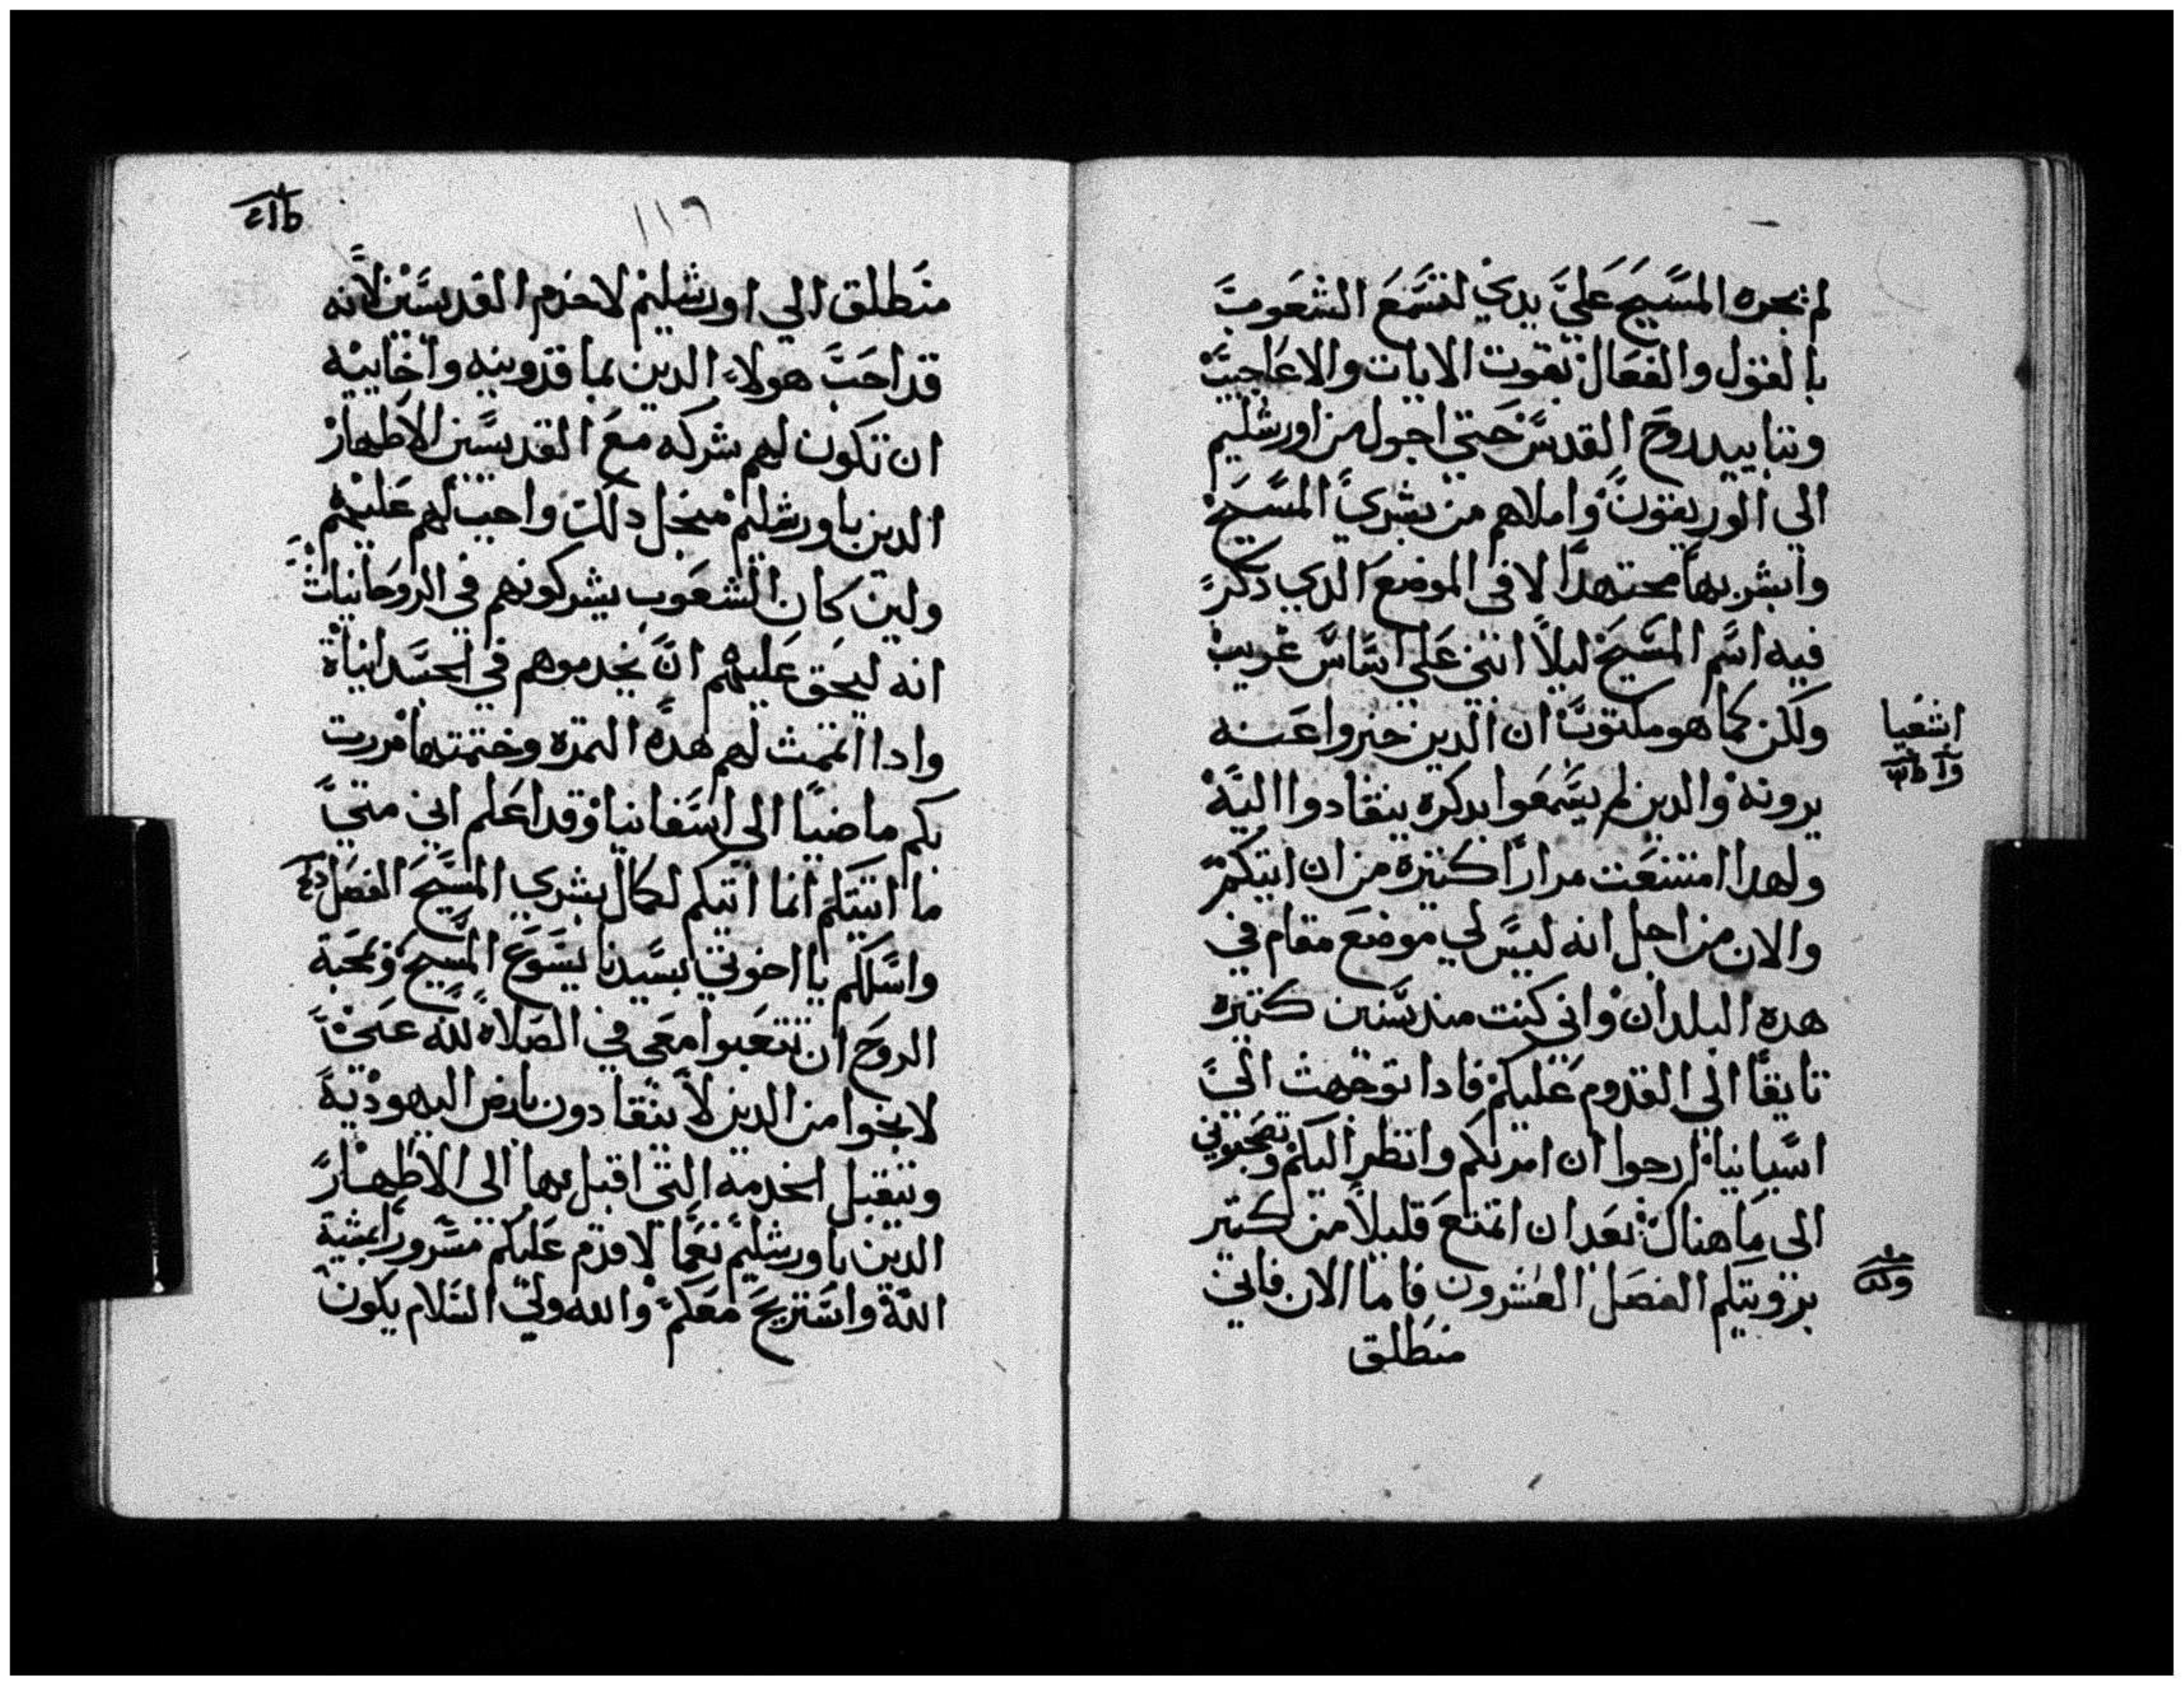 لم يجره المسيح علي يدي لتسمع الشعوب
بالقول والفعال بقوت الايات والاعاجيب
وبتاييد روح القدس حتي اجول من اورشليم
الي الوريقون واملاهم من بشري المسيح
وابشر بها مجتهدا لا في الموضع الدي دكر
فيه اسم المسيح ليلا ابني علي اساس غريب
ولكن كما هو مكتوب ان الدين خبروا عنه
اشعيا
يرونه والدين لم يسمعوا بدكره ينقادوا اليه
ولهدا امتنعت مرارا كتيره من ان اتيكم
والان من اجل انه ليس لي موضع مقام في
هده البلدان واني كنت مند سنين كتيره
تايقا الي القدوم عليكم فادا توجهت الي
اسبانيا ارجوا ان امر بكم وانظر اليكم وتصحبوني
الي ما هناك بعد ان اتمتع قليلا من كتير
بررويتكم الفصل العشرون فاما الان فاني
منطلق
١١٦
منطلق الي اورشليم لاخدم القديسين لانه
قد احب هولاء الدين بماقدونيه واخاييه
ان تكون لهم شركه مع القديسين الاطهار
الدين باورشليم منجل دلك واجب لهم عليهم
ولين كان الشعوب يشركونهم في الروحانيات
انه ليحق عليهم ان يخدموهم في الجسدانياة
وادا اتممت لهم هده التمره وختمتها مررت
بكم ماضيا الي اسفانيا وقد اعلم اني متي
ما اتيتكم انما اتيكم لكمال بشري المسيح الفصل
واسلكم يا اخوتي بسيدنا يسوع المسيح وبمحبة
الروح ان تتعبوا معي في الصلاه لله عني
لانجوا من الدين لا ينقادون بارض اليهودية
وتتقبل الخدمه التي اقبل بها الي الاطهار
الدين باورشليم نعما لاقدم عليكم مسرورا بمشية
الله واستريح معكم والله ولي السلام يكون